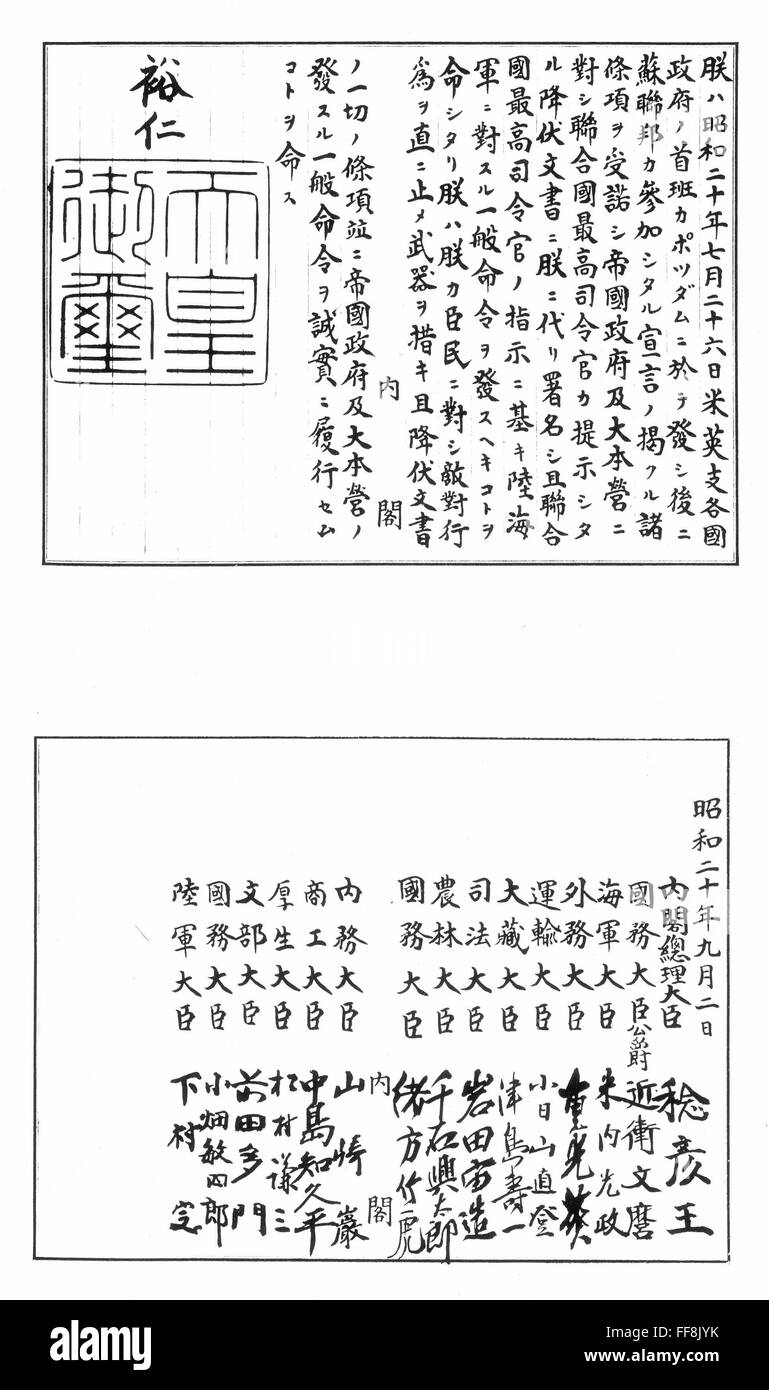 朕ハ昭和二十年七月二十六日米英支各國
政府ノ首班カポツダムニ於テ發シ後ニ
蘇聯邦カ參加シタル宣言ノ掲クル諸
條項ヲ受諾シ帝國政府及大本營ニ
對シ聯合國最高司令官カ提示シタ
ル降伏文書ニ朕ニ代リ署名シ且聯合
國最高司令官ノ指示ニ基キ陸海
軍ニ對スル一般命令ヲ發スヘキコトヲ
命シタリ朕ハ朕カ臣民ニ對シ敵對行
爲ヲ直ニ止メ武器ヲ措キ且降伏文書
内閣
ノ一切ノ條項竝ニ帝國政府及大本營ノ
發スル一般命令ヲ誠實ニ履行セム
コトヲ命ス
裕仁
天皇
御璽
昭和二十年九月二日
内閣總理大臣 稔彦王
國務大臣公爵 近衛文麿
海軍大臣 米内光政
外務大臣 重光葵
運輸大臣 小日山直登
大藏大臣 津島壽一
司法大臣 岩田宙造
農林大臣 千石興太郎
國務大臣 緒方竹虎
内閣
内務大臣 山崎巖
商工大臣 中島知久平
厚生大臣 松村謙三
文部大臣 前田多門
國務大臣 小畑敏四郎
陸軍大臣 下村定
alamy stock photo
FF8JYK
www.alamy.com